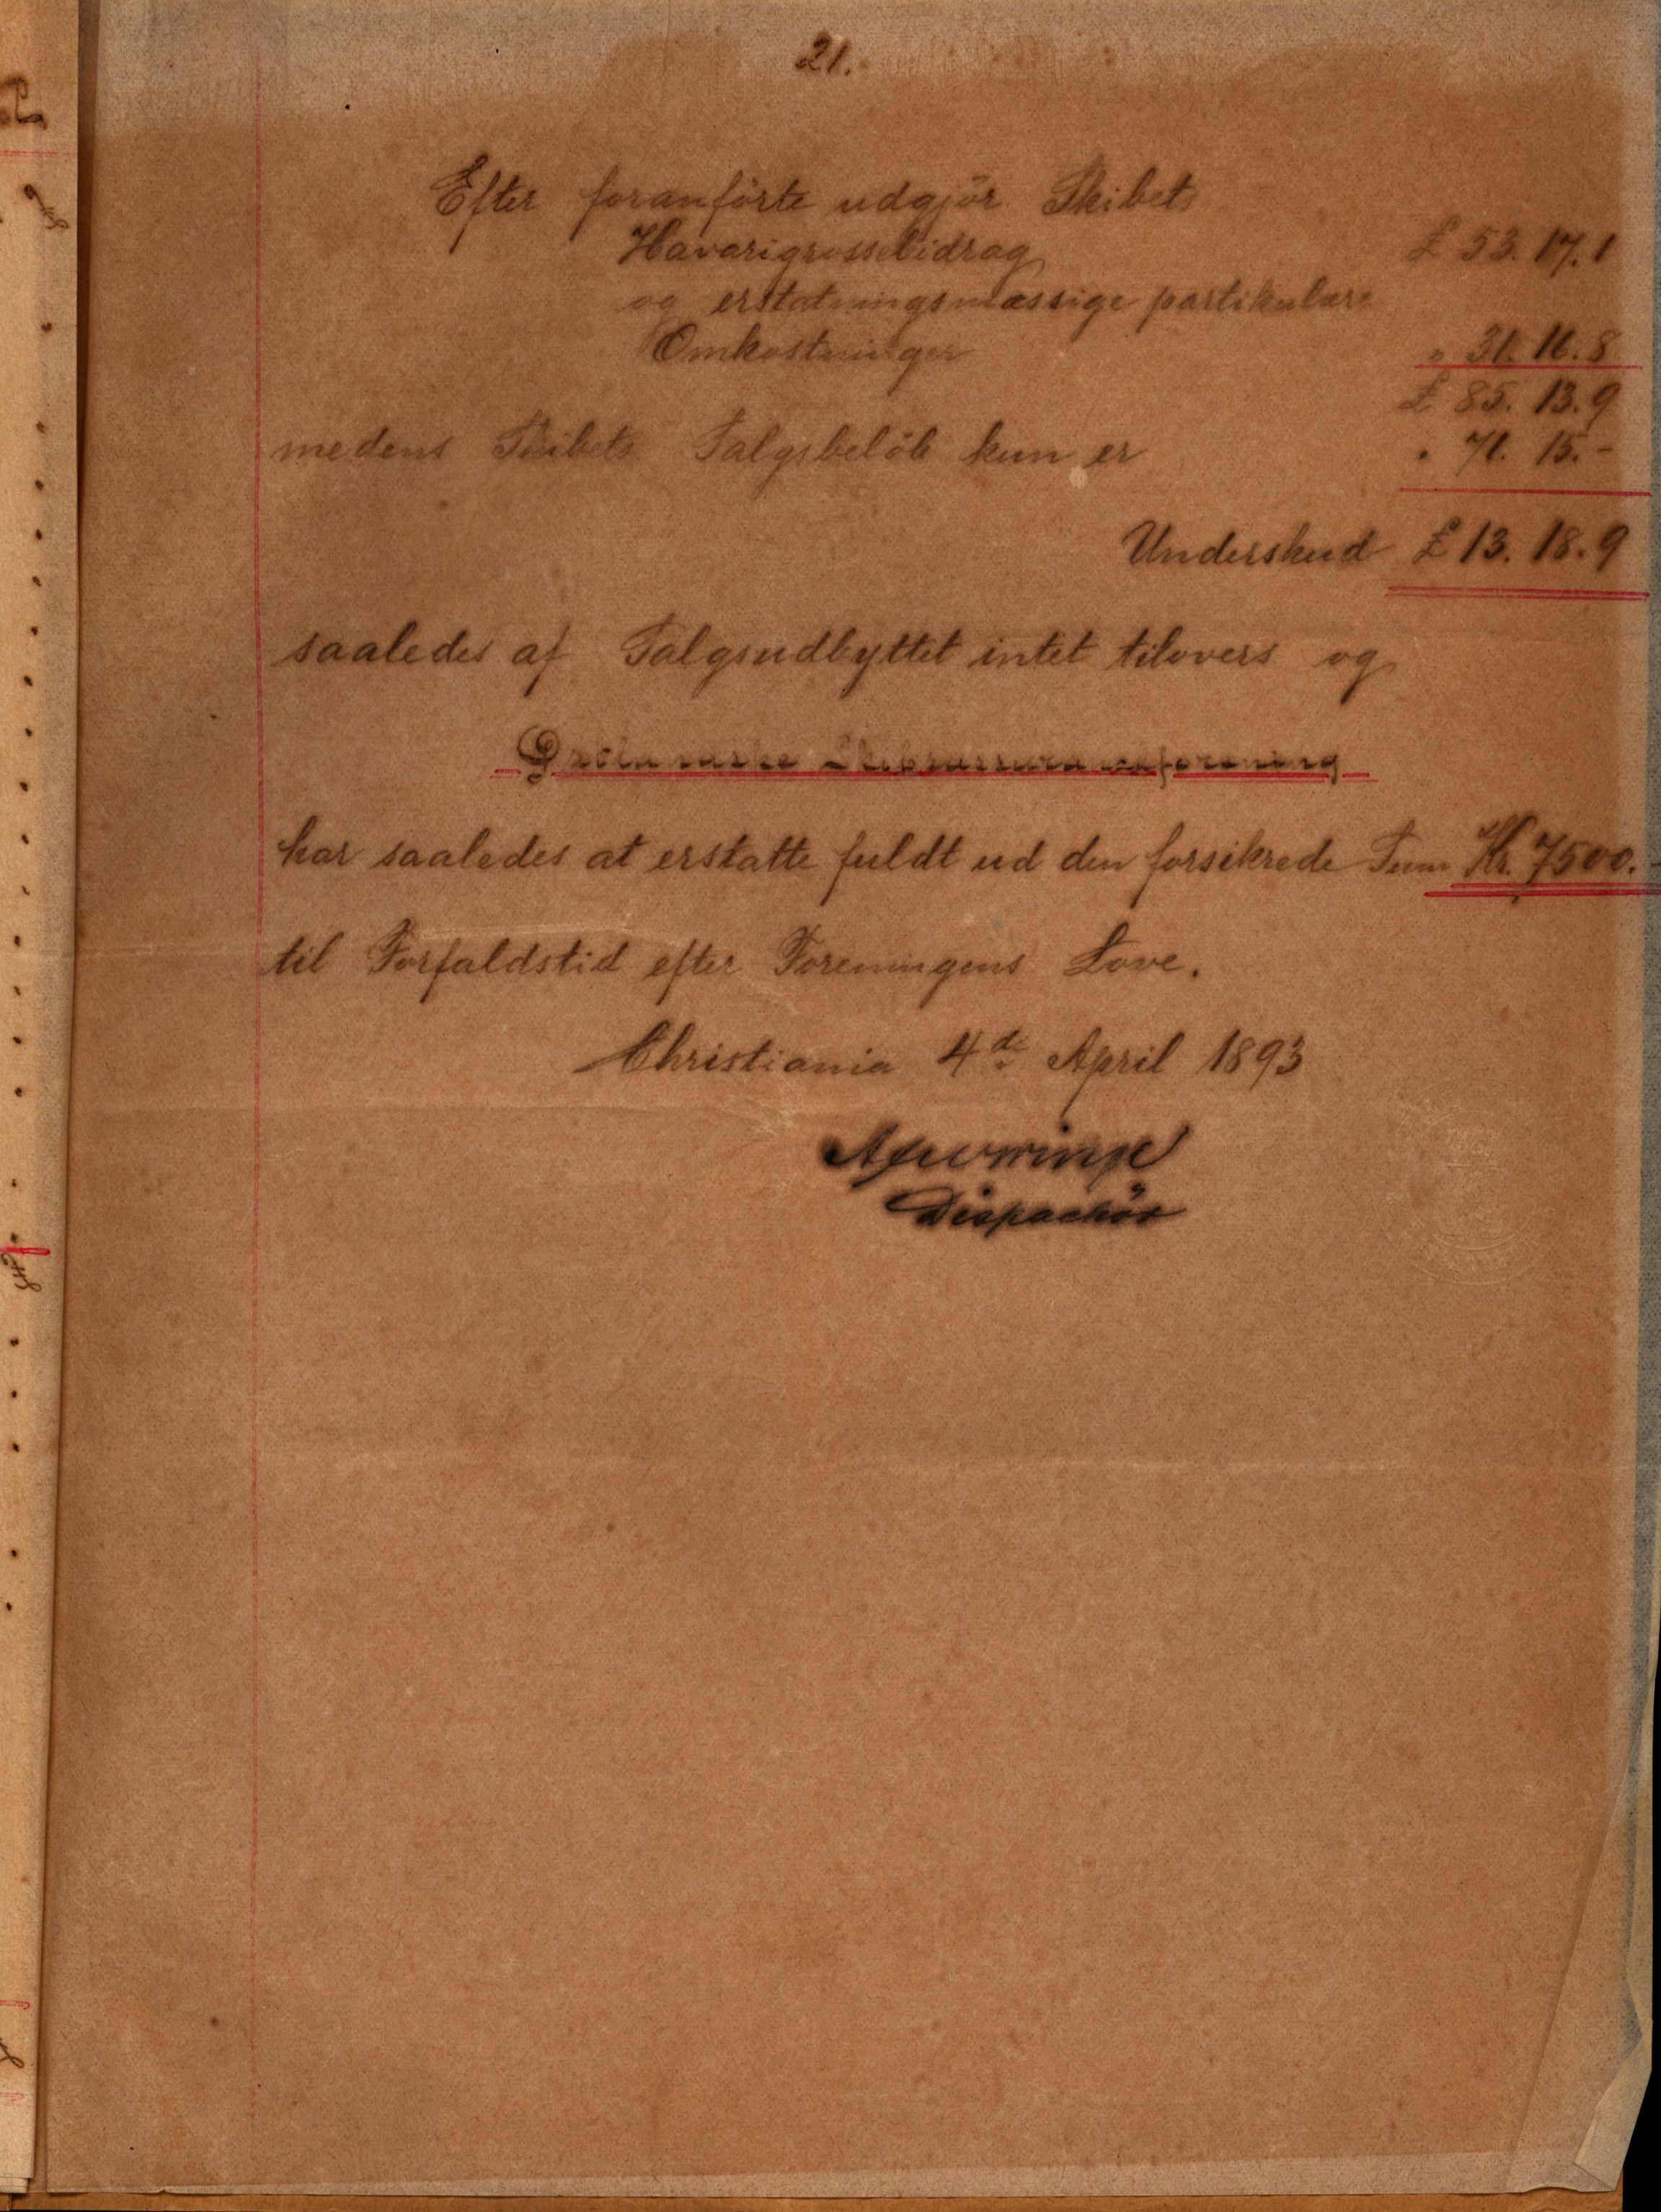 21.
Efter foranförte udgjör Skibets
Havarigrossebidrag £ 53. 17. 1
og erstatningsmæssige partikulære
Omkostninger " 31. 16. 8
£ 85. 13. 9
medens Skibets Salgsbelöb kun er " 71. 15. -
Underskud £ 13. 18. 9
saaledes af Salgsudbyttet intet tilovers og
Skibsassuranceforening
har saaledes at erstatte fuldt ud den forsikrede Sum Kr. 7500. -
til Forfaldstid efter Foreningens Love.
Christiania 4de April 1893
Dispachör